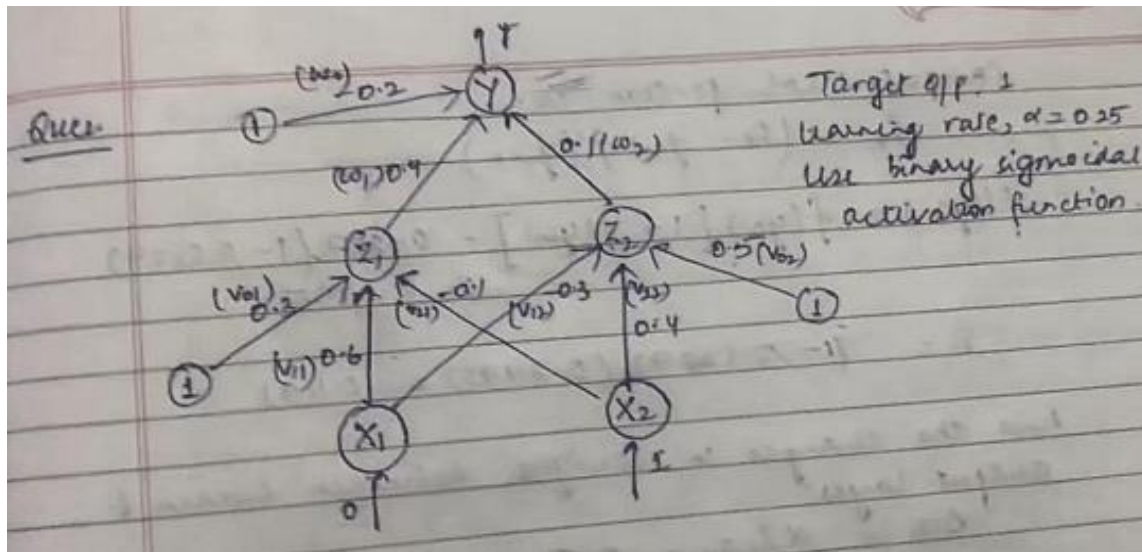 Ques.
Y
(w0) -0.2
1
Y
Target o/p: 1
learning rate, α = 0.25
Use binary sigmoidal
activation function.
(w1) 0.4
0.1 (w2)
Z1
Z2
(V01)
0.3
(V11) 0.6
(V21) -0.1
(V12) -0.3
(V22)
0.4
0.5 (V02)
1
1
X1
X2
0
1